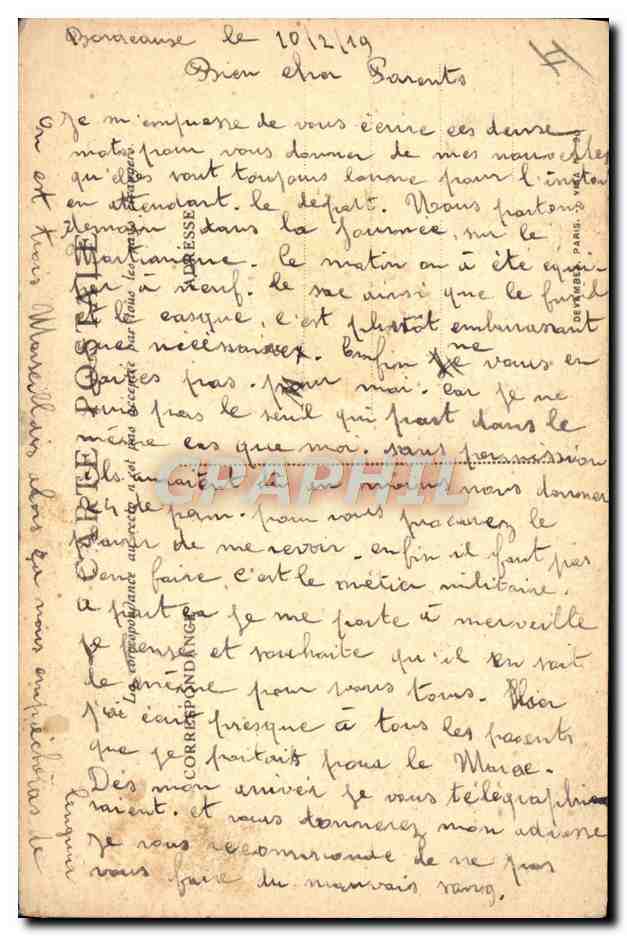 Bordeause le 10/2/19
Bien cher Parents
Je m'empresse de vous écrire ces deuse
mots pour vous donner de mes nouvelles
qu'elles sont toujours bonne pour l'instant
en attendant le départ. Nous partons
demain dans la journée, sur le
Martinique. le matin on à été equi-
per à neuf. le sac ainsi que le fusil
et le casque, c'est plutôt embarassant
que nécéssaire. Enfin ne vous en
faites pas pour moi. Car je ne
suis pas le seul qui part dans le
même cas que moi. sans permission
ils auraient dû au moins nous donner
de perm. pour vous procurez le
plaisir de me revoir. enfin il faut pas
s'en faire, c'est le métier militaire.
a part ça je me porte à merveille
je pense et souhaite qu'il en soit
de même pour vous tous. Hier
j'ai écrit presque à tous les parents
que je partais pour le Maroc.
Dès mon arriver je vous télégraphie
raient. et vous donnerez mon adresse
Je vous recommande de ne pas
vous faire du mauvais sang.
on est trois Marseillais alors ça nous empêcheras de
languir
CARTE POSTALE
La correspondance au recto n'est pas acceptée par tous les pays étrangers
CORRESPONDANCE
ADRESSE
DEVAMBEZ, PARIS.
CPAPHIL